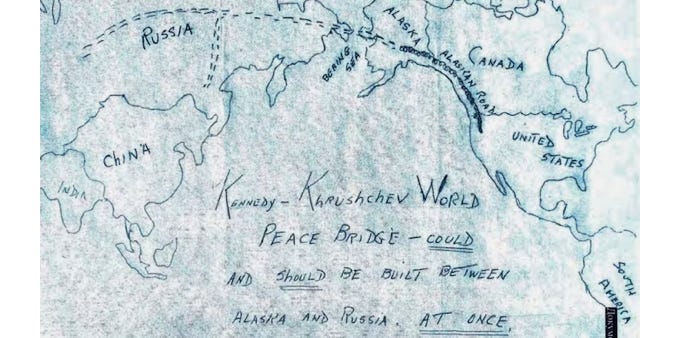 RUSSIA
ALASKA
BERING
SEA
ALASKAN ROAD
CANADA
CHINA
INDIA
UNITED
STATES
KENNEDY - KHRUSHCHEV WORLD
PEACE BRIDGE - COULD
AND SHOULD BE BUILT BETWEEN
ALASKA AND RUSSIA. AT ONCE.
SOUTH
AMERICA